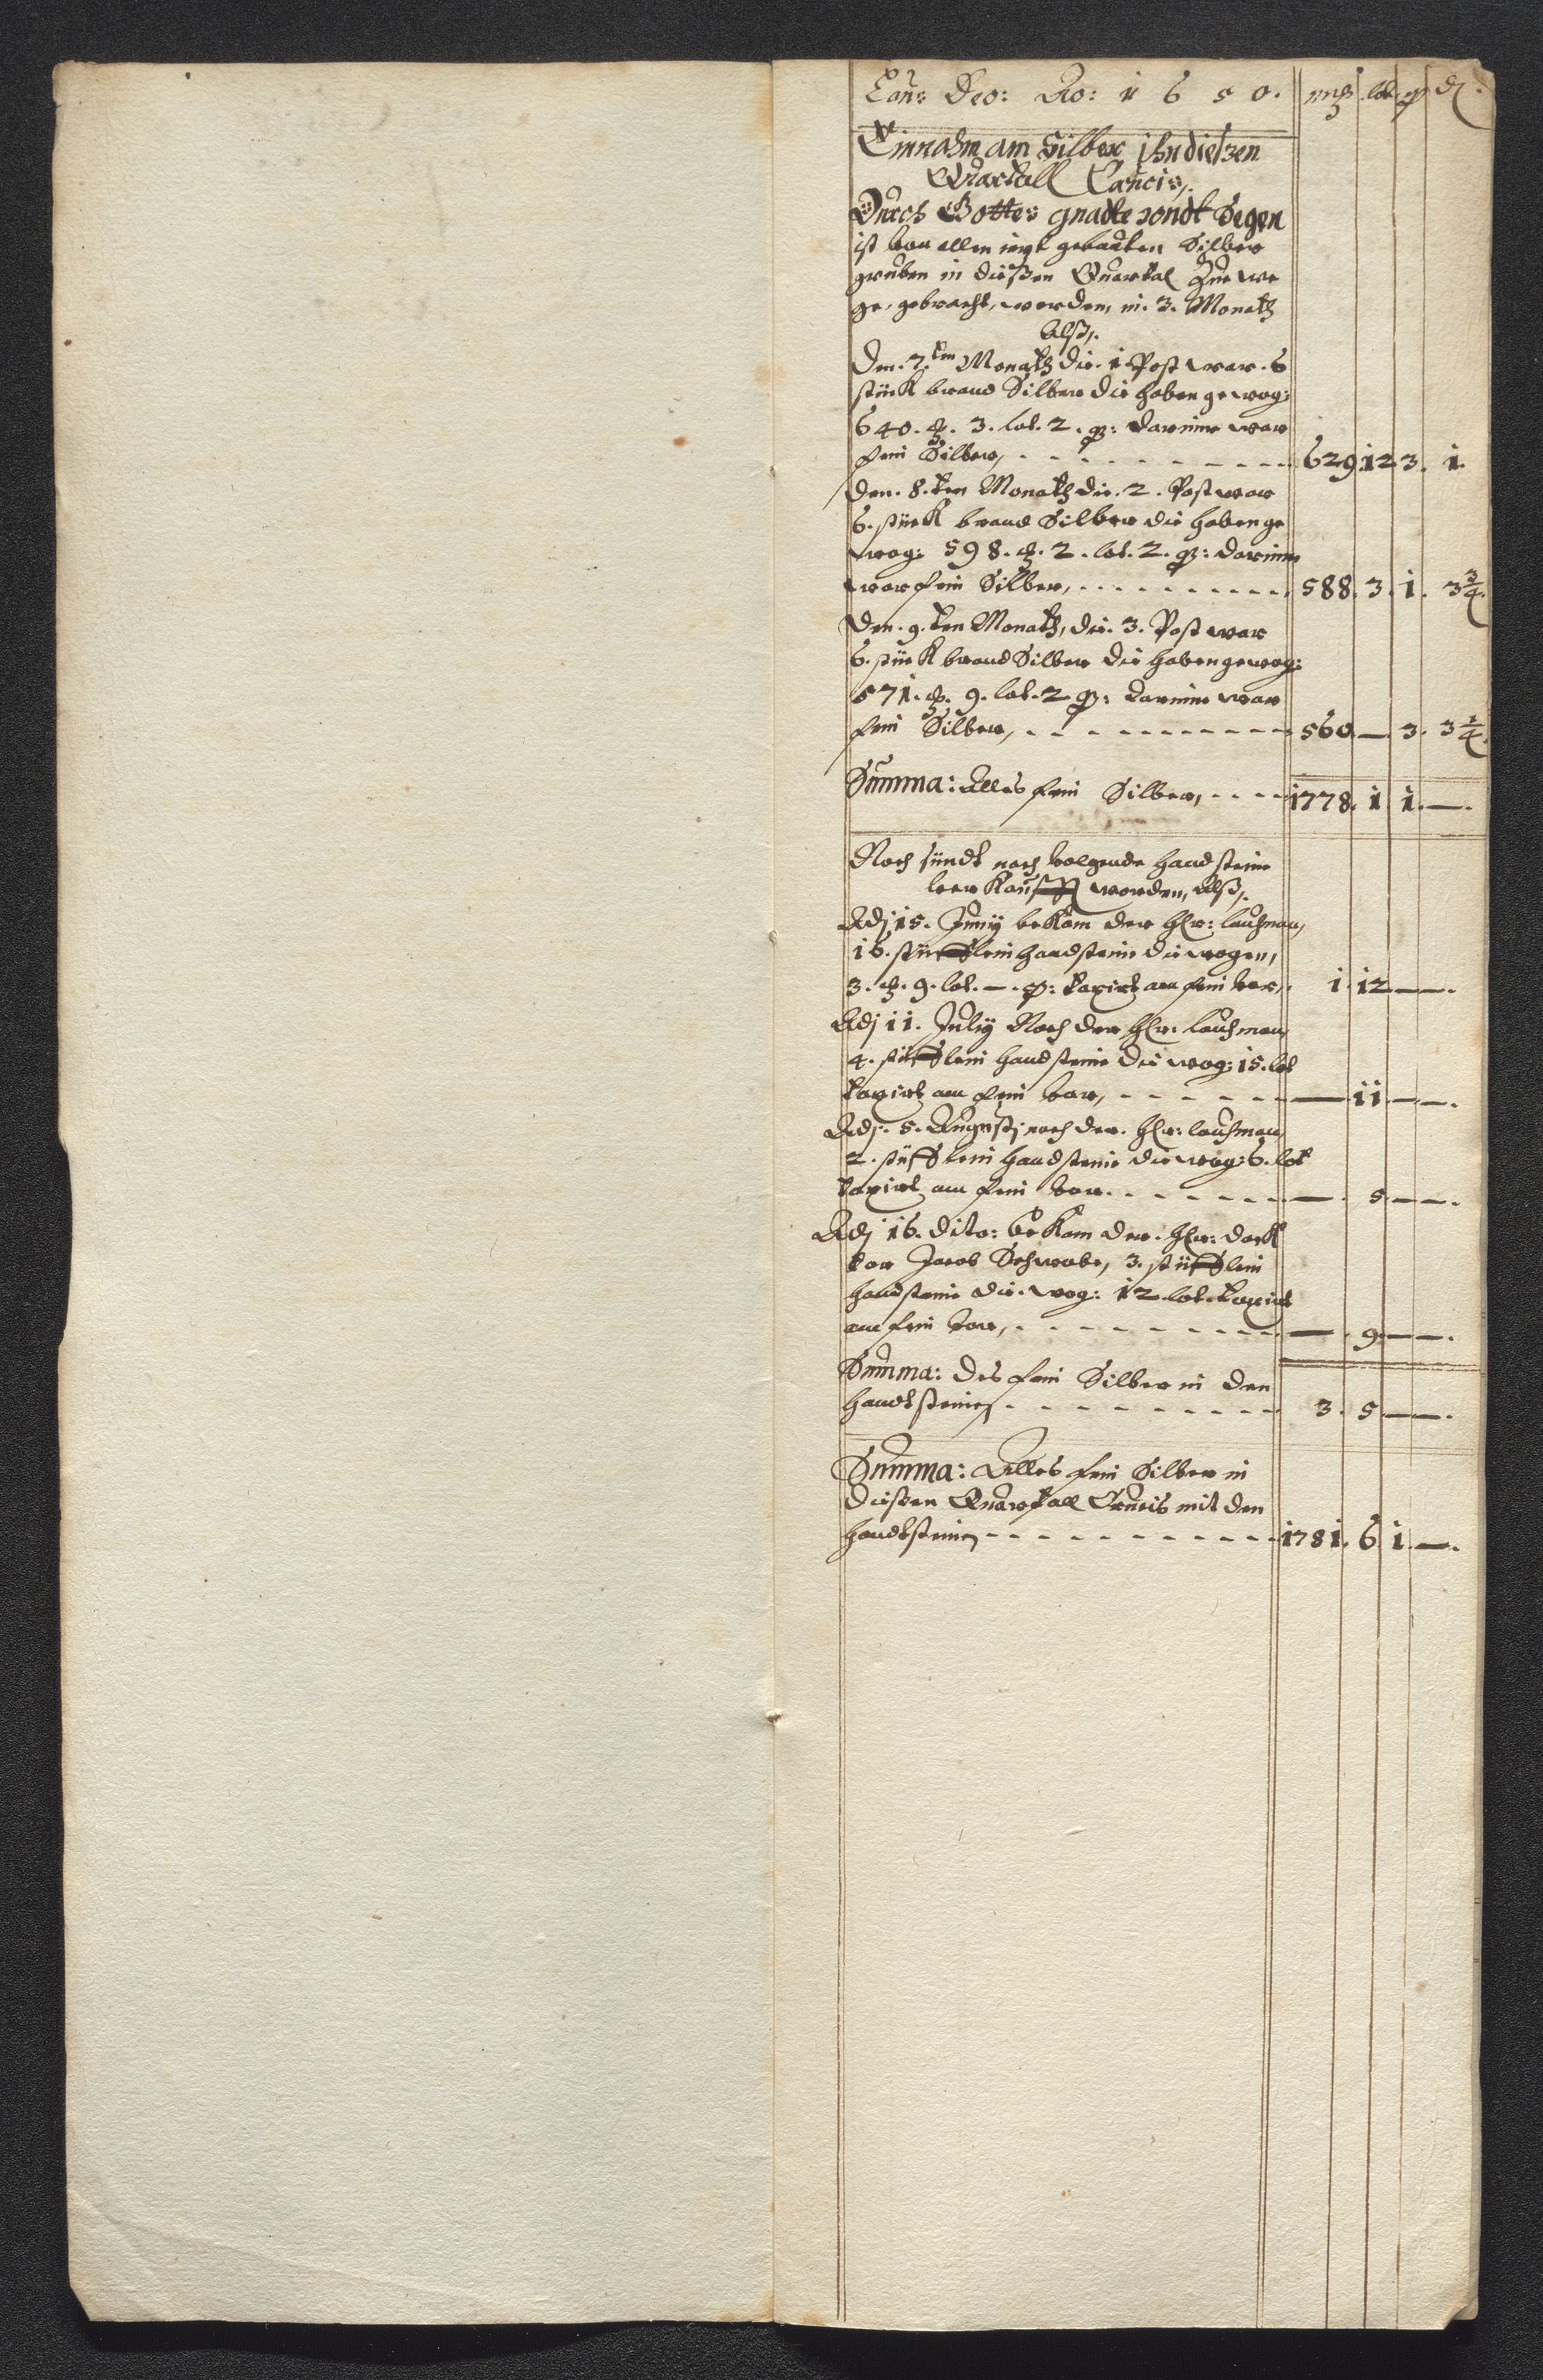 Laus Deo: Ao: 1650. mß lot q d.
Einnahm am Silber ihn dießen
Quartall Crucis,.
Durch Gottes gnadte vondt Segen
ist von allen imgebauten Silber
gruben in dießen Quartal Zue we
ge, gebracht, worden, in. 3. Monath
Alß,.
Den. 7.ten Monath die. 1 Post war. 6
stück brand Silber die haben gewog:
640. mß. 3. lot. 2. q: darinne war
fein Silber, 629 12 3. 1.
Den. 8.ten Monath die. 2. Post war
6. stück brand Silber die haben ge
wog: 598. mß. 2. lot. 2. q: darinne
war fein Silber, 588. 3. 1. 3 3/4.
Den. 9. ten Monath, die. 3. Post war
6. stück brand Silber die haben gewog:
571. mß. 9. lot. 2 q: darinne war
fein Silber, 560 — 3. 3 1/4.
Summa: Alles fein Silber, 1778. 1 1. —.
Noch sündt nach volgende handsteine
ver Kaufft worden, Alß,.
Adj 15. Juny beKam der Hr: lausman,
16. stücklein handsteine die wogen,
3. mß. 9. lot. —. q: taxirt am fein vor, 1. 12 — —.
Adj 11. July Noch der Hr: lausman,
4. stücklein handsteine die wog: 15. lot
taxirt am fein vor, — 11 — —.
Adj. 5. Augustj noch der. Hr: lausman,
2. stücklein handsteine die wog: 6. lot
taxirt am fein vor. — . 5 — —.
Adj 16. dito: beKam der. Hr: dock
tor Jacob Schwabe, 3. stücklein
handsteine die. wog: 12. lot. taxirt
am fein vor, — . 9. — —.
Summa: Des fein Silber in den
handtsteinen 3. 5 — —.
Summa: Alles fein Silber in
dießen Quartall Crucis mit den
handtsteinen 1781. 6 1. —.